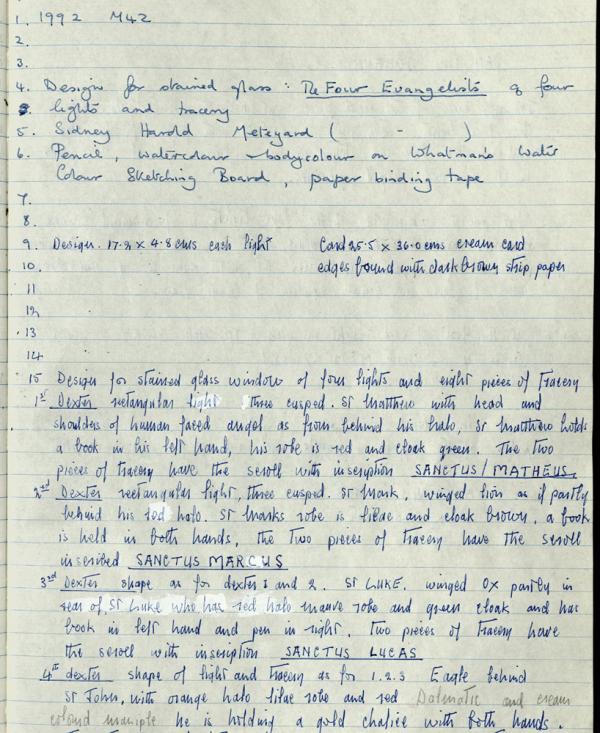 1. 1992 M42
2.
3.
4. Design for stained glass: The Four Evangelists of four
5. lights and tracery
5. Sidney Harold Meteyard ( - )
6. Pencil, watercolour + bodycolour on Whatman's Water
Colour Sketching Board, paper binding tape
7.
8.
9. Design. 17.2 x 4.8 cms each light Card 25.5 x 36.0 cms cream card
10. edges bound with dark brown strip paper
11
12
13
14
15 Design for stained glass window of four lights and eight pieces of tracery
1st Dexter rectangular light three cusped. St Matthew with head and
shoulders of human faced angel as from behind his halo, St Matthew holds
a book in his left hand, his robe is red and cloak green. The two
pieces of tracery have the scroll with inscription SANCTUS/MATHEUS.
2nd Dexter rectangular light, three cusped. St Mark, winged lion as if partly
behind his red halo. St Marks robe is lilac and cloak brown, a book
is held in both hands, the two pieces of tracery have the scroll
inscribed SANCTUS MARCUS
3rd Dexter shape as for dexter 1 and 2. St LUKE. winged OX partly in
rear of St Luke who has red halo mauve robe and green cloak and has
book in left hand and pen in right. Two pieces of tracery have
the scroll with inscription SANCTUS LUCAS
4th dexter shape of light and tracery as for 1.2.3 Eagle behind
St John, with orange halo lilac robe and red Dalmatic and cream
colourd maniple he is holding a gold chalice with both hands.